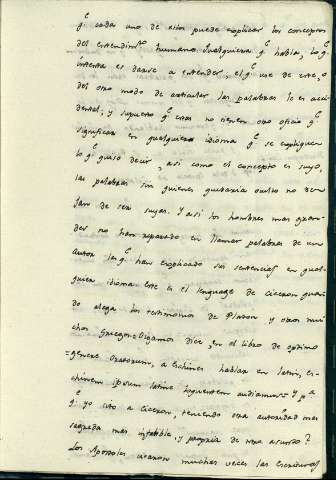 q.e cada uno de ellos puede explicar los conceptos
del entendim.to humano. Qualquiera q.e habla, lo q.e
intenta es darse a entender, el q.e use de este, o
del otro modo de articular las palabras le es acci-
dental; y supuesto q.e estas no tienen otro oficio q.e
significar en qualquiera idioma q.e se expliquen
lo q.e quiso decir, asi como el concepto es suyo,
las palabras sin quienes quedaria oculto no de-
jan de ser suyas. Y asi los hombres mas gran-
des no han reparado en llamar palabras de un
autor las q.e han explicado sus sentencias en qual-
quiera idioma. Este es el lenguage de Ciceron quan-
do alega los testimonios de Platon y otros mu-
chos Griegos: Oigamos dice, en el libro de optimo
genere Oratorum, a Eschines hablar en latin, es-
chinem ipsum latine loquentem audiamus = y p.a
q.e yo cito a Ciceron, teniendo otra autoridad mas
sagrada mas infalible, y propria de mro asunto?
Los Apostoles citaron muchas veces las Escrituras